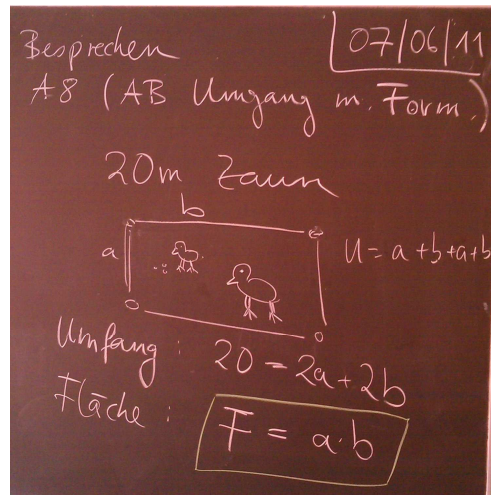 Besprechen
07/06/11
A8 (AB Umgang m. Form.)
20m Zaun
b
a
U = a+b+a+b
Umfang: 20 = 2a + 2b
Fläche: F = a·b